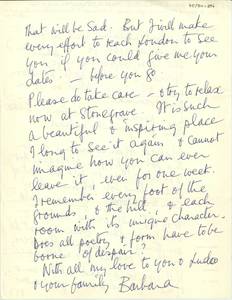 that will be Sad. But I will make
every effort to reach London to see
you if you could give me your
dates - before you go
Please do take care - & try to relax
now at Stonegrave. It is such
a beautiful & inspiring place
I long to see it again & cannot
imagine how you can ever
leave it, even for one week.
I remember every foot of the
grounds, & the hill, & each
room with its unique character.
Does all poetry & form have to be
borne of despair?
With all my love to you & Ludo
& your family Barbara